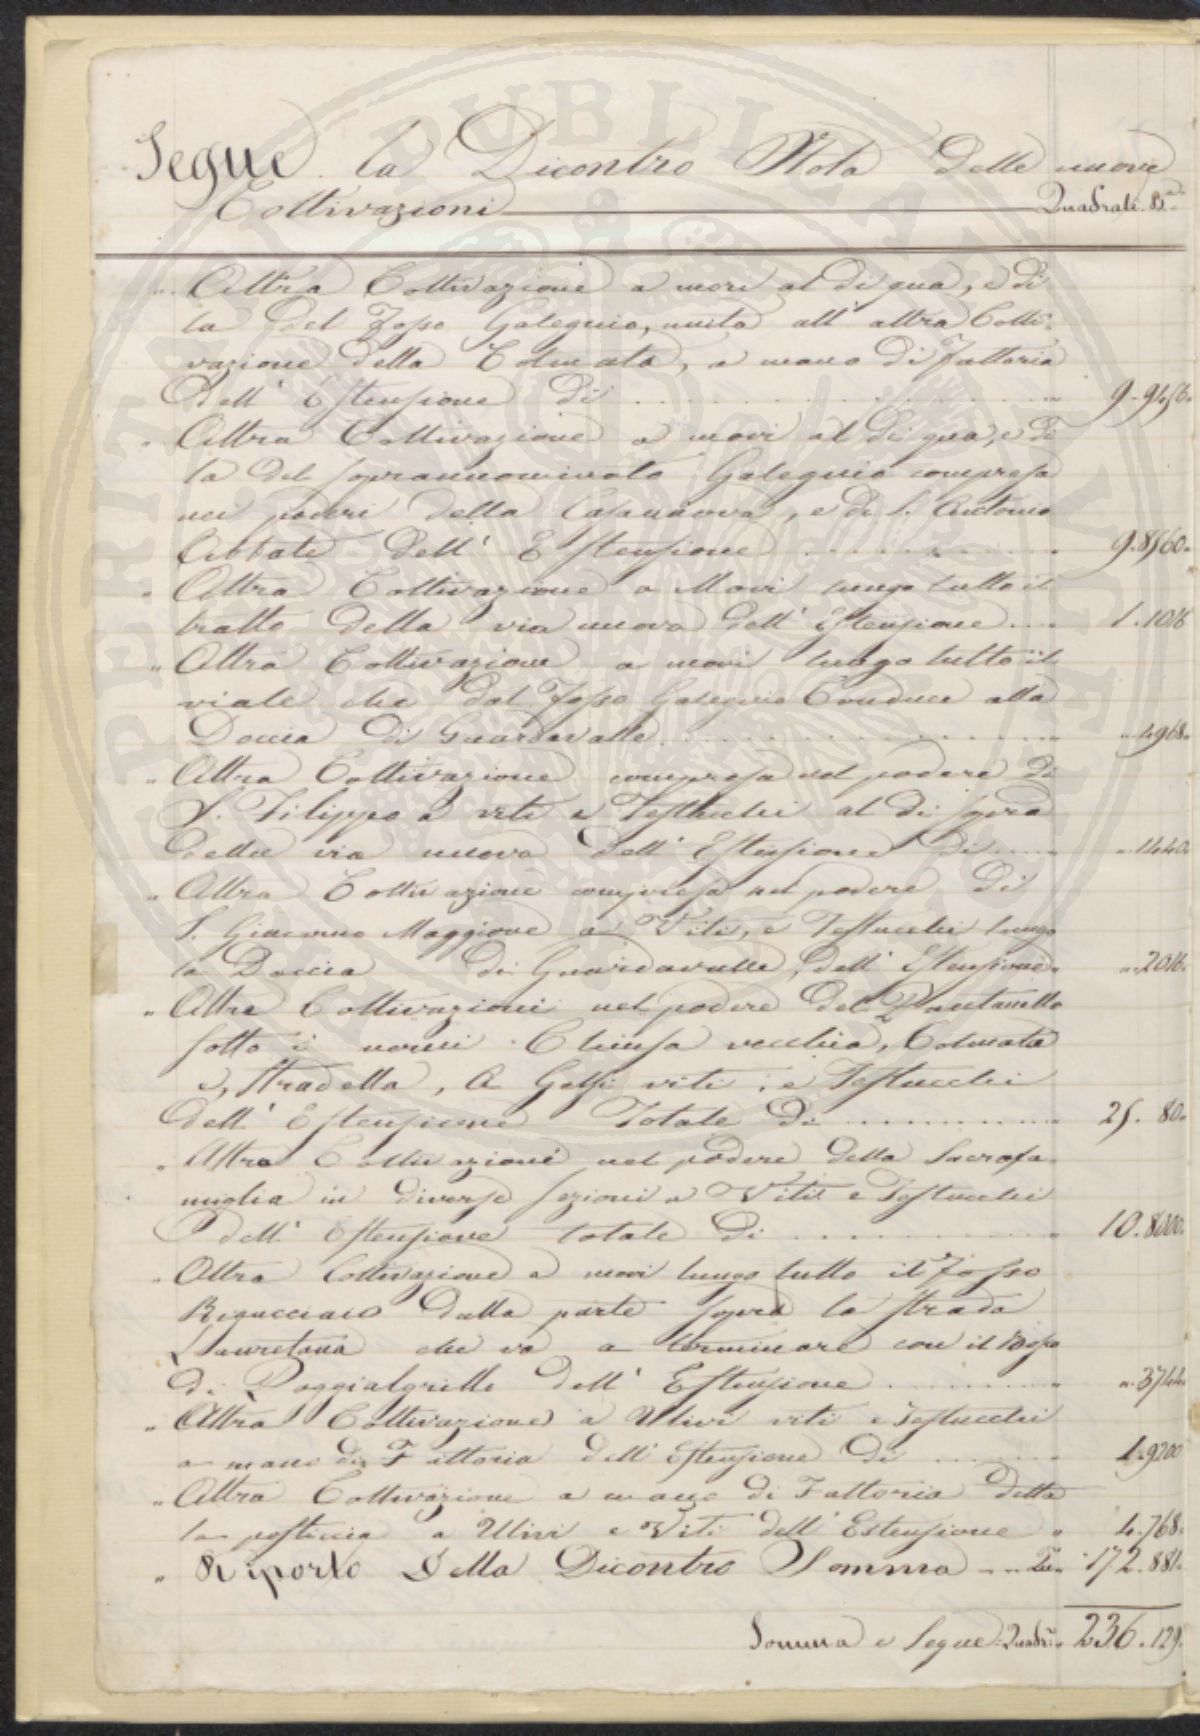 Segue la Dicontro Nota delle nuove
Coltivazioni Quadrati. B.
" Altra Coltivazione a mori al di qua, e di
la del Fosso Galegnio, unita all' altra Colti-
vazione della Colmata, a mano di Fattoria
dell' Estensione di 9.9456.
" Altra Coltivazione a mori al di qua, e di
la del soprannominato Galegnio compresa
nei poderi della Casanuova, e di S. Antonio
Abbate dell' Estensione 9.8560.
" Altra Coltivazione a Mori lungo tutto il
tratto della via nuova dell' Estensione 1.1016
" Altra Coltivazione a mori lungo tutto il
viale che dal Fosso Galegnio Conduce alla
Doccia di Guardavalle " 4968.
" Altra Coltivazione compresa nel podere di
S. Filippo a viti e Testucchi al di sopra
della via nuova dell' Estensione di " 1440.
" Altra Coltivazione compresa nel podere di
S. Giacomo Maggiore a Viti, e Testucchi lungo
la Doccia di Guardavalle, dell' Estensione " 2016.
" Altre Coltivazioni nel podere del Pantanello
sotto i nomi Chiusa vecchia, Colmata
e, Stradella, a Gelsi viti, e Testucchi
dell' Estensione Totale di 25. 80.
" Altre Coltivazioni nel podere della Sacrafa-
miglia in diverse sezioni a Viti e Testucchi
dell' Estensione totale di 10.8000.
" Altra Coltivazione a mori lungo tutto il Fosso
dalla parte sopra la strada
Lauretana che va a terminare con il
di Poggialgrillo dell' Estensione " 3744.
" Altra Coltivazione a Ulivi viti e Testucchi
a mano di Fattoria dell' Estensione di 1.9200
" Altra Coltivazione a mano di Fattoria detta
la posticcia a Ulivi e Viti dell' Estensione " 4.768.
" Riporto Della Dicontro Somma 172.881.
Somma e Segue Quadri. 236.129.